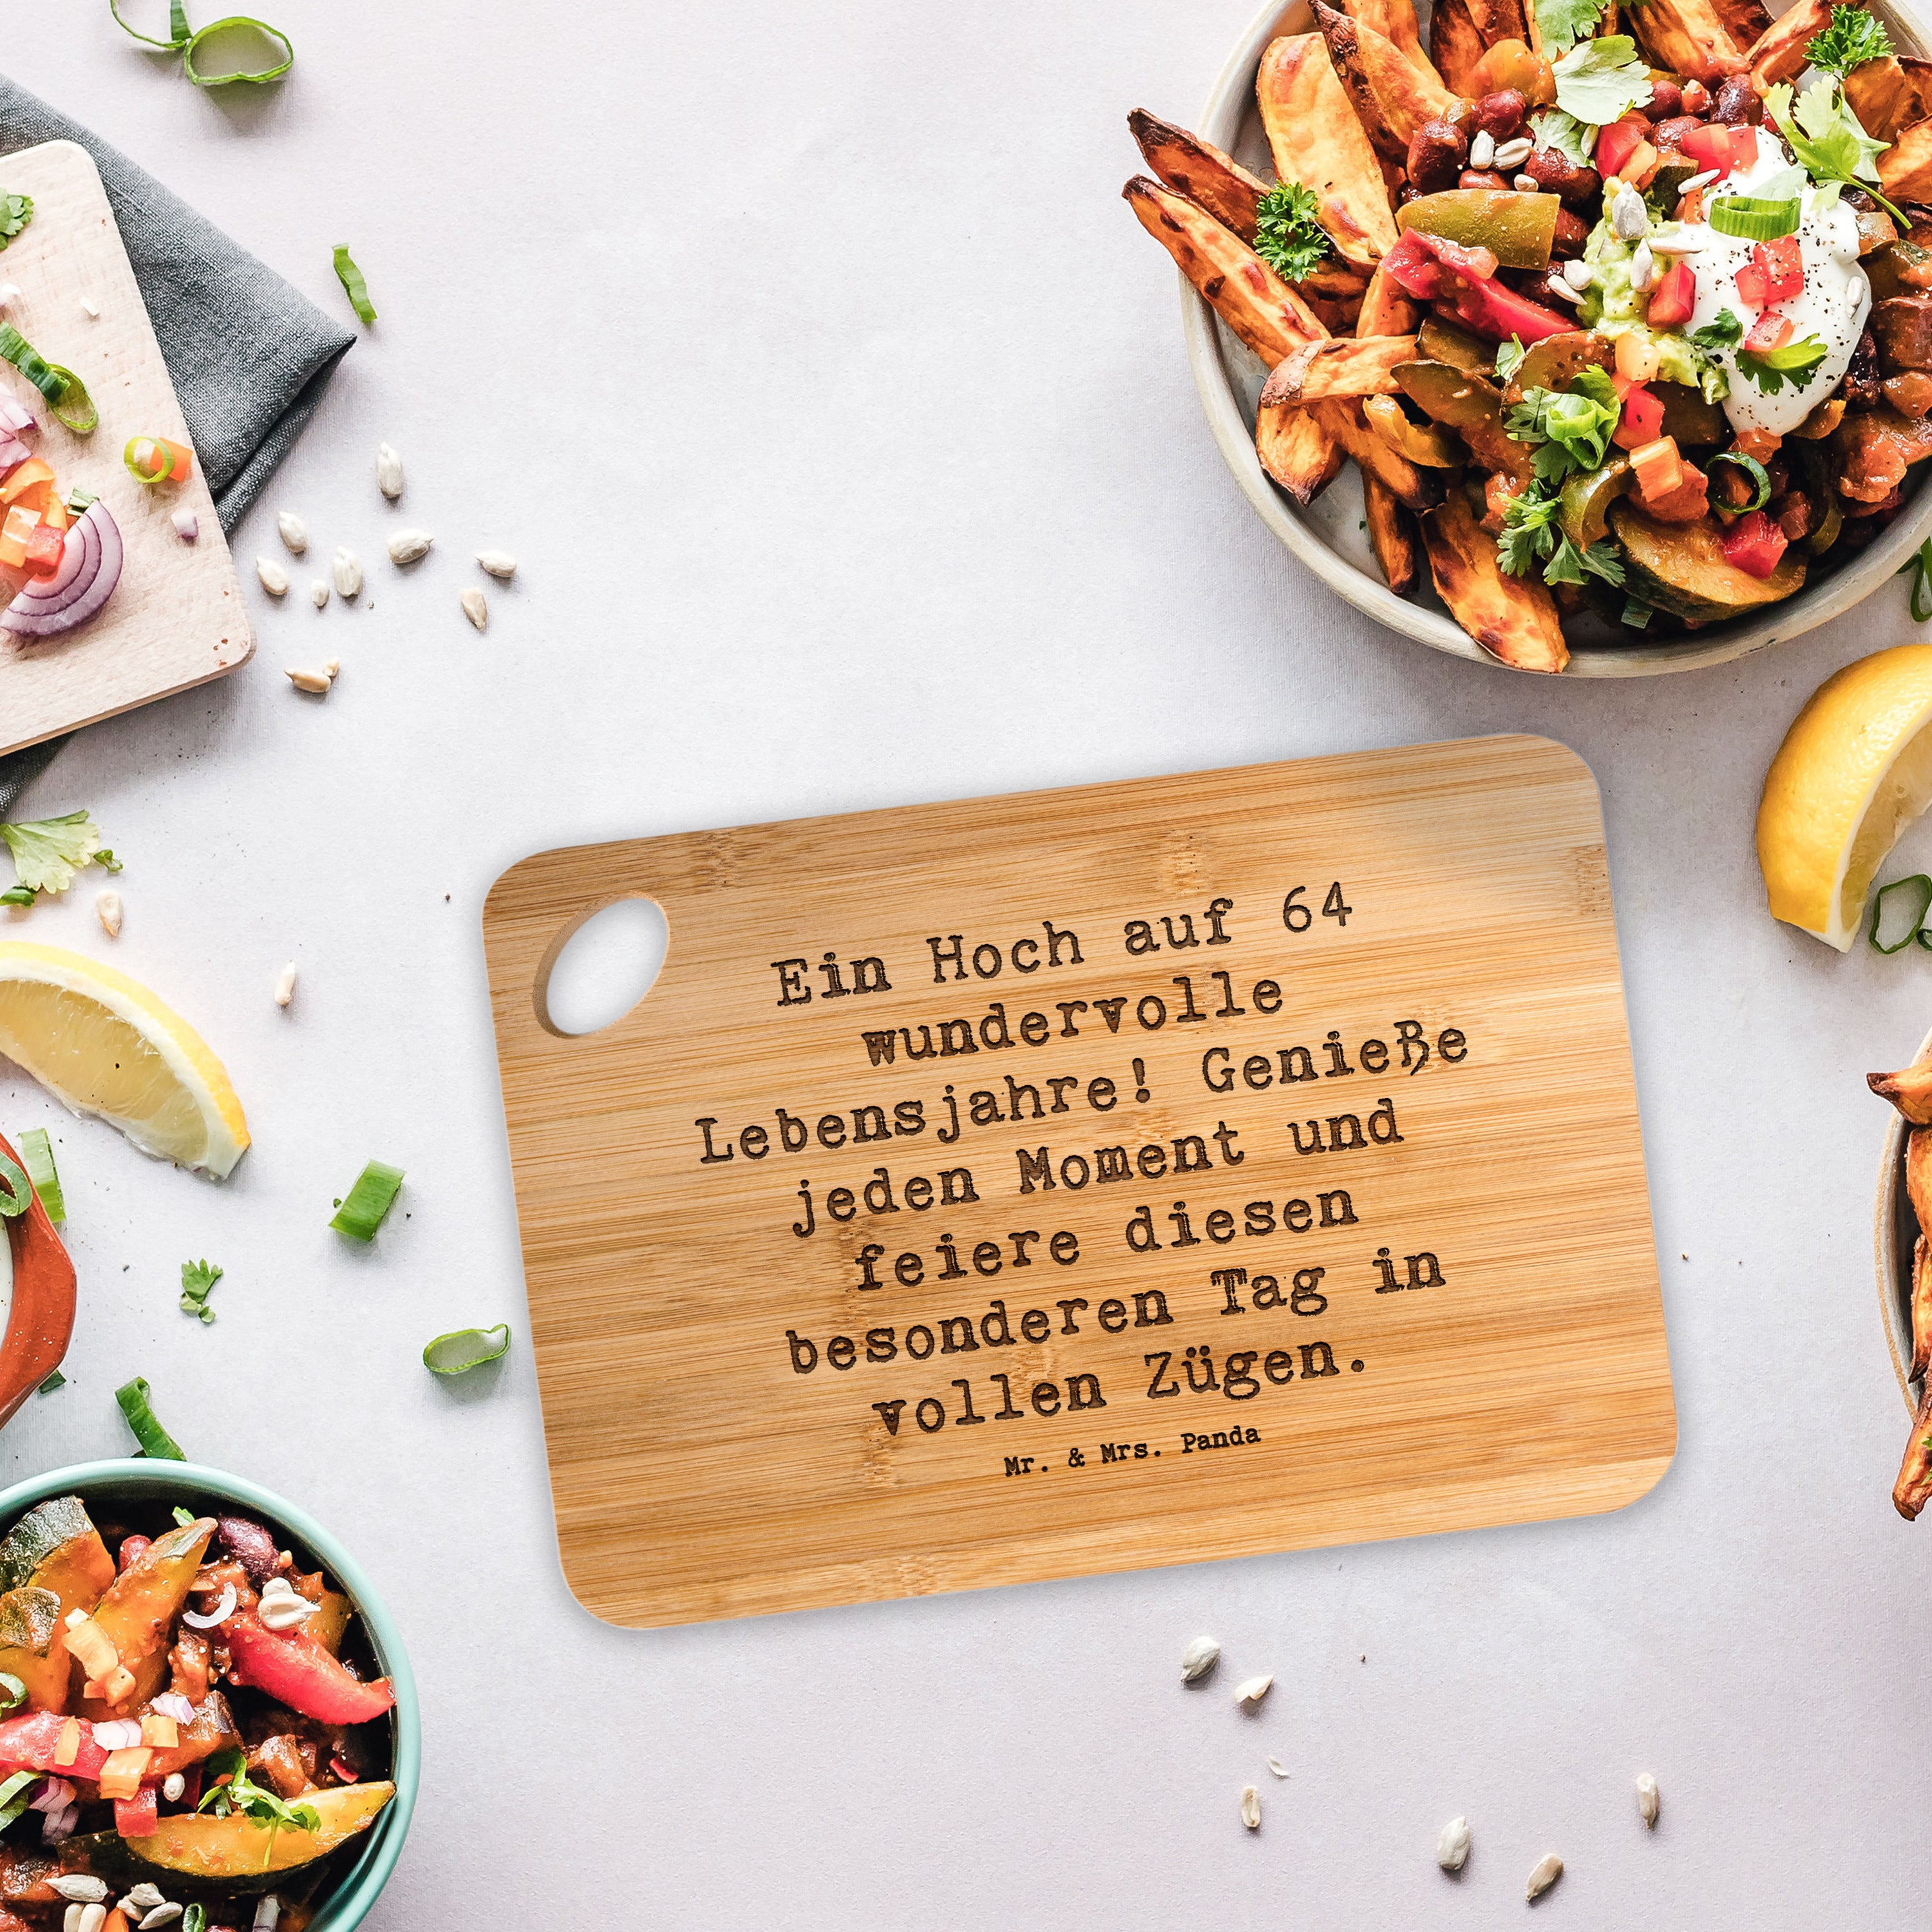 Ein Hoch auf 64
wundervolle
Lebensjahre! Genieße
jeden Moment und
feiere diesen
besonderen Tag in
vollen Zügen.
Mr. & Mrs. Panda